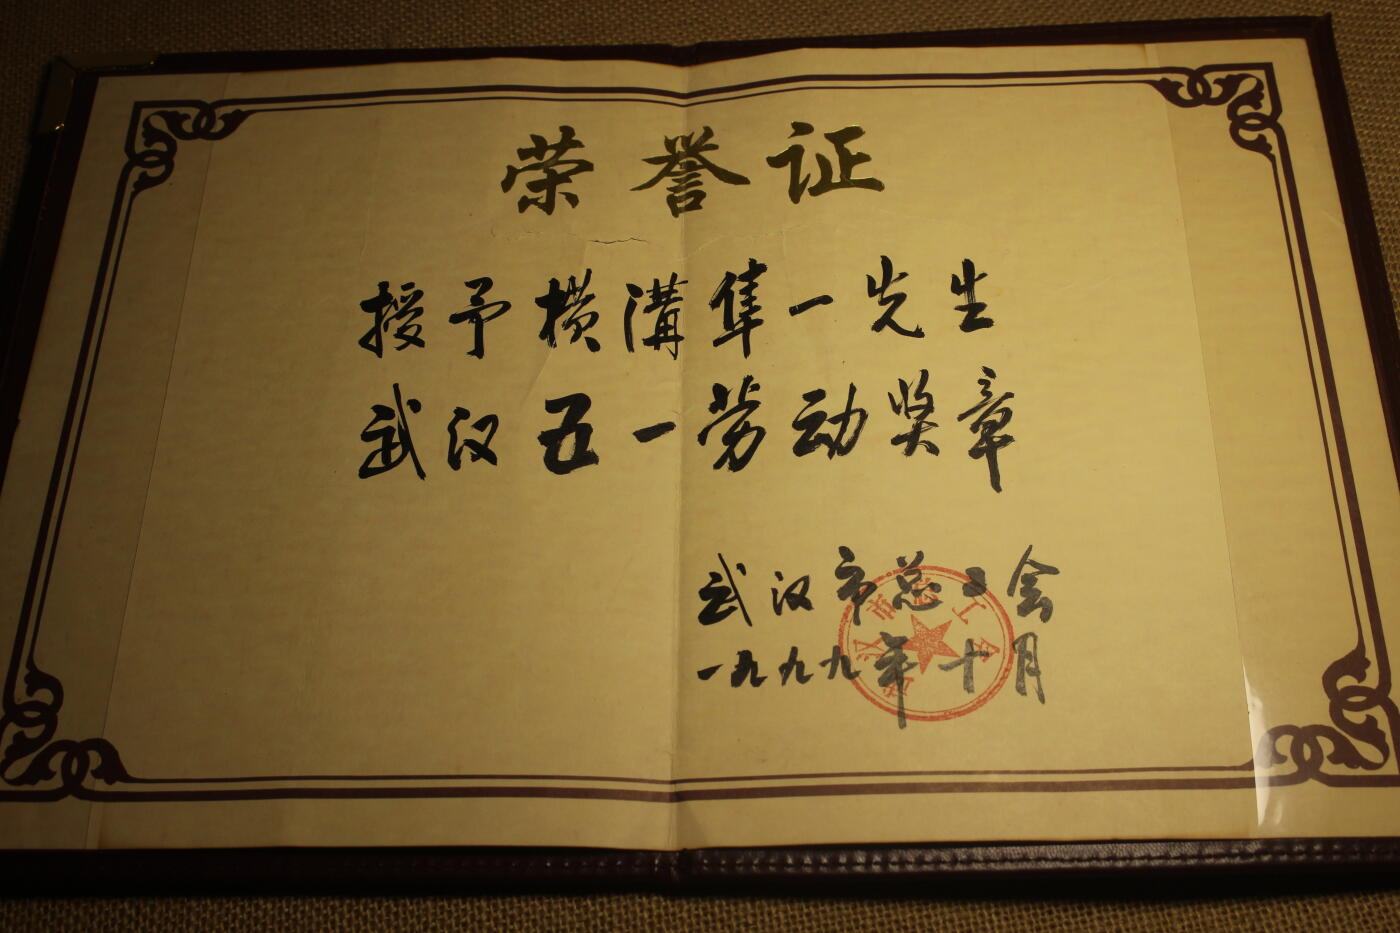 荣誉证
授予横溝隼一先生
武汉五一劳动奖章
武汉市总工会
一九九九年十月
武汉市总工会